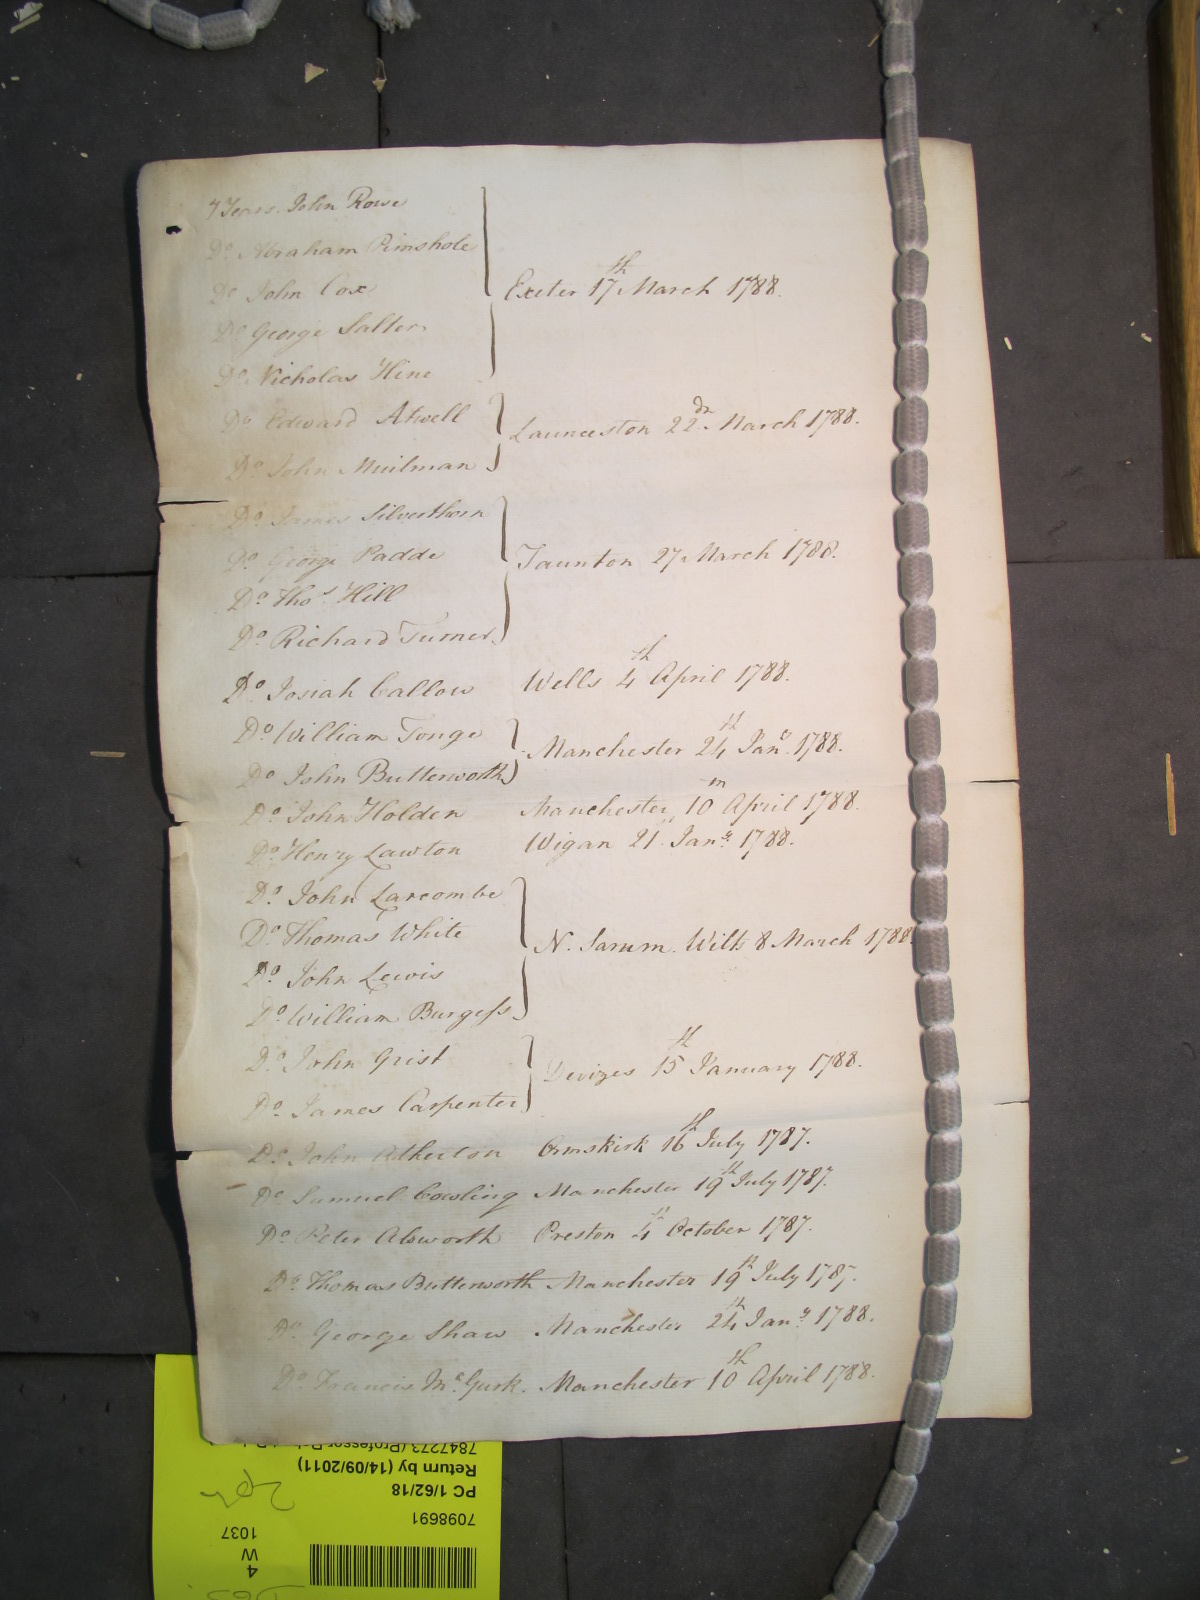 7 Years John Rowe
Do. Abraham Pimshole
Do. John Cox
Exeter 17th March 1788.
Do. George Salter
Do. Nicholas Hine
Do. Edward Atwell
Launceston 22d. March 1788.
Do. John Muilman
Do. James Silverthorn
Do. George Padde
Taunton 27. March 1788.
Do. Thos. Hill
Do. Richard Turner
Do. Josiah Callow Wells 4th April 1788.
Do. William Tonge
Manchester 24th Jany. 1788.
Do. John Butterworth
Do. John Holden Manchester 10th April 1788.
Do. Henry Lawton Wigan 21 Jany. 1788.
Do. John Larcombe
Do. Thomas White
N. Sarum Wilts 8 March 1788
Do. John Lewis
Do. William Burgess
Do. John Grist
Devizes 15th January 1788.
Do. James Carpenter
Do. John Atherton Ormskirk 16th July 1787.
Do. Samuel Cowling Manchester 19th July 1787.
Do. Peter Alsworth Preston 4th October 1787.
Do. Thomas Butterworth Manchester 19th July 1787.
Do. George Shaw Manchester 24th Jany. 1788.
Do. Francis Mc.Gurk. Manchester 10th April 1788.
7847273 (Professor
Return by (14/09/2011)
PC 1/62/18
7098691
1037
W
4